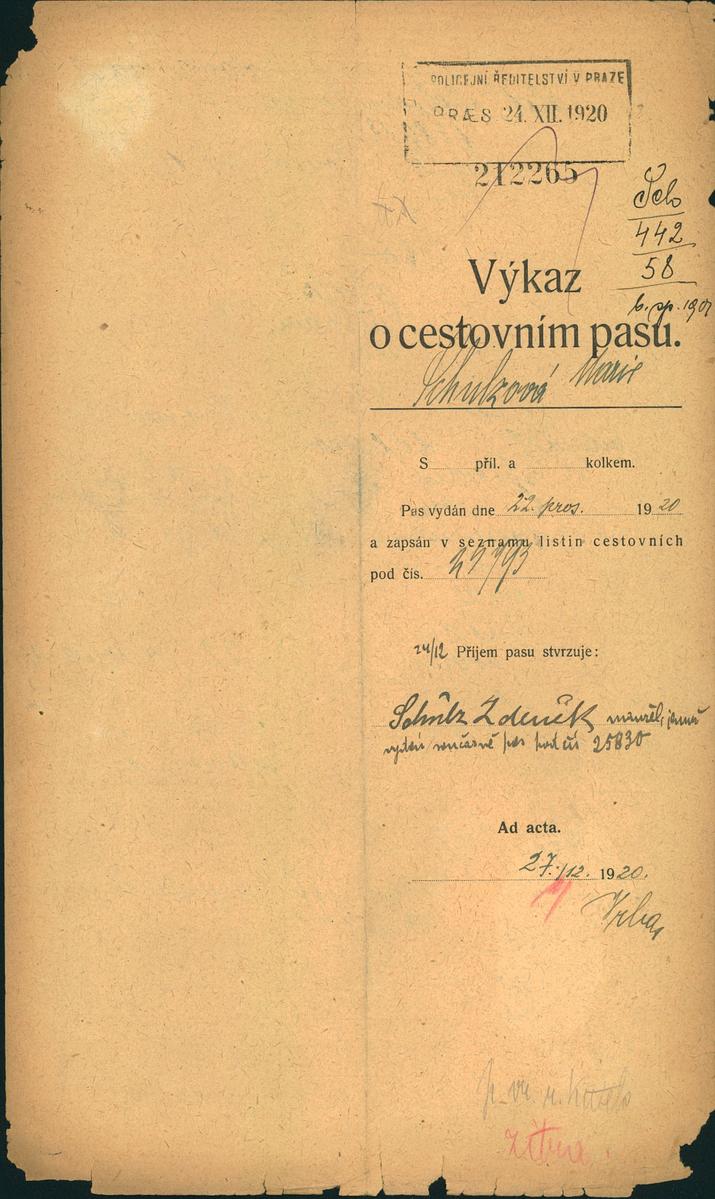 POLICEJNÍ ŘEDITELSTVÍ V PRAZE
PRÆS 24. XII. 1920
212265
Sch
442
58
Výkaz
o cestovním pasu.
Schulzová Marie
S příl. a kolkem.
Pas vydán dne 22. pros. 1920
a zapsán v seznamu listin cestovních
pod čís.
24/12 Příjem pasu stvrzuje:
Schulz Zdeněk manžel, jemuž
vydán současně pas pod čís 25830
Ad acta.
27./12. 1920.
Vrba